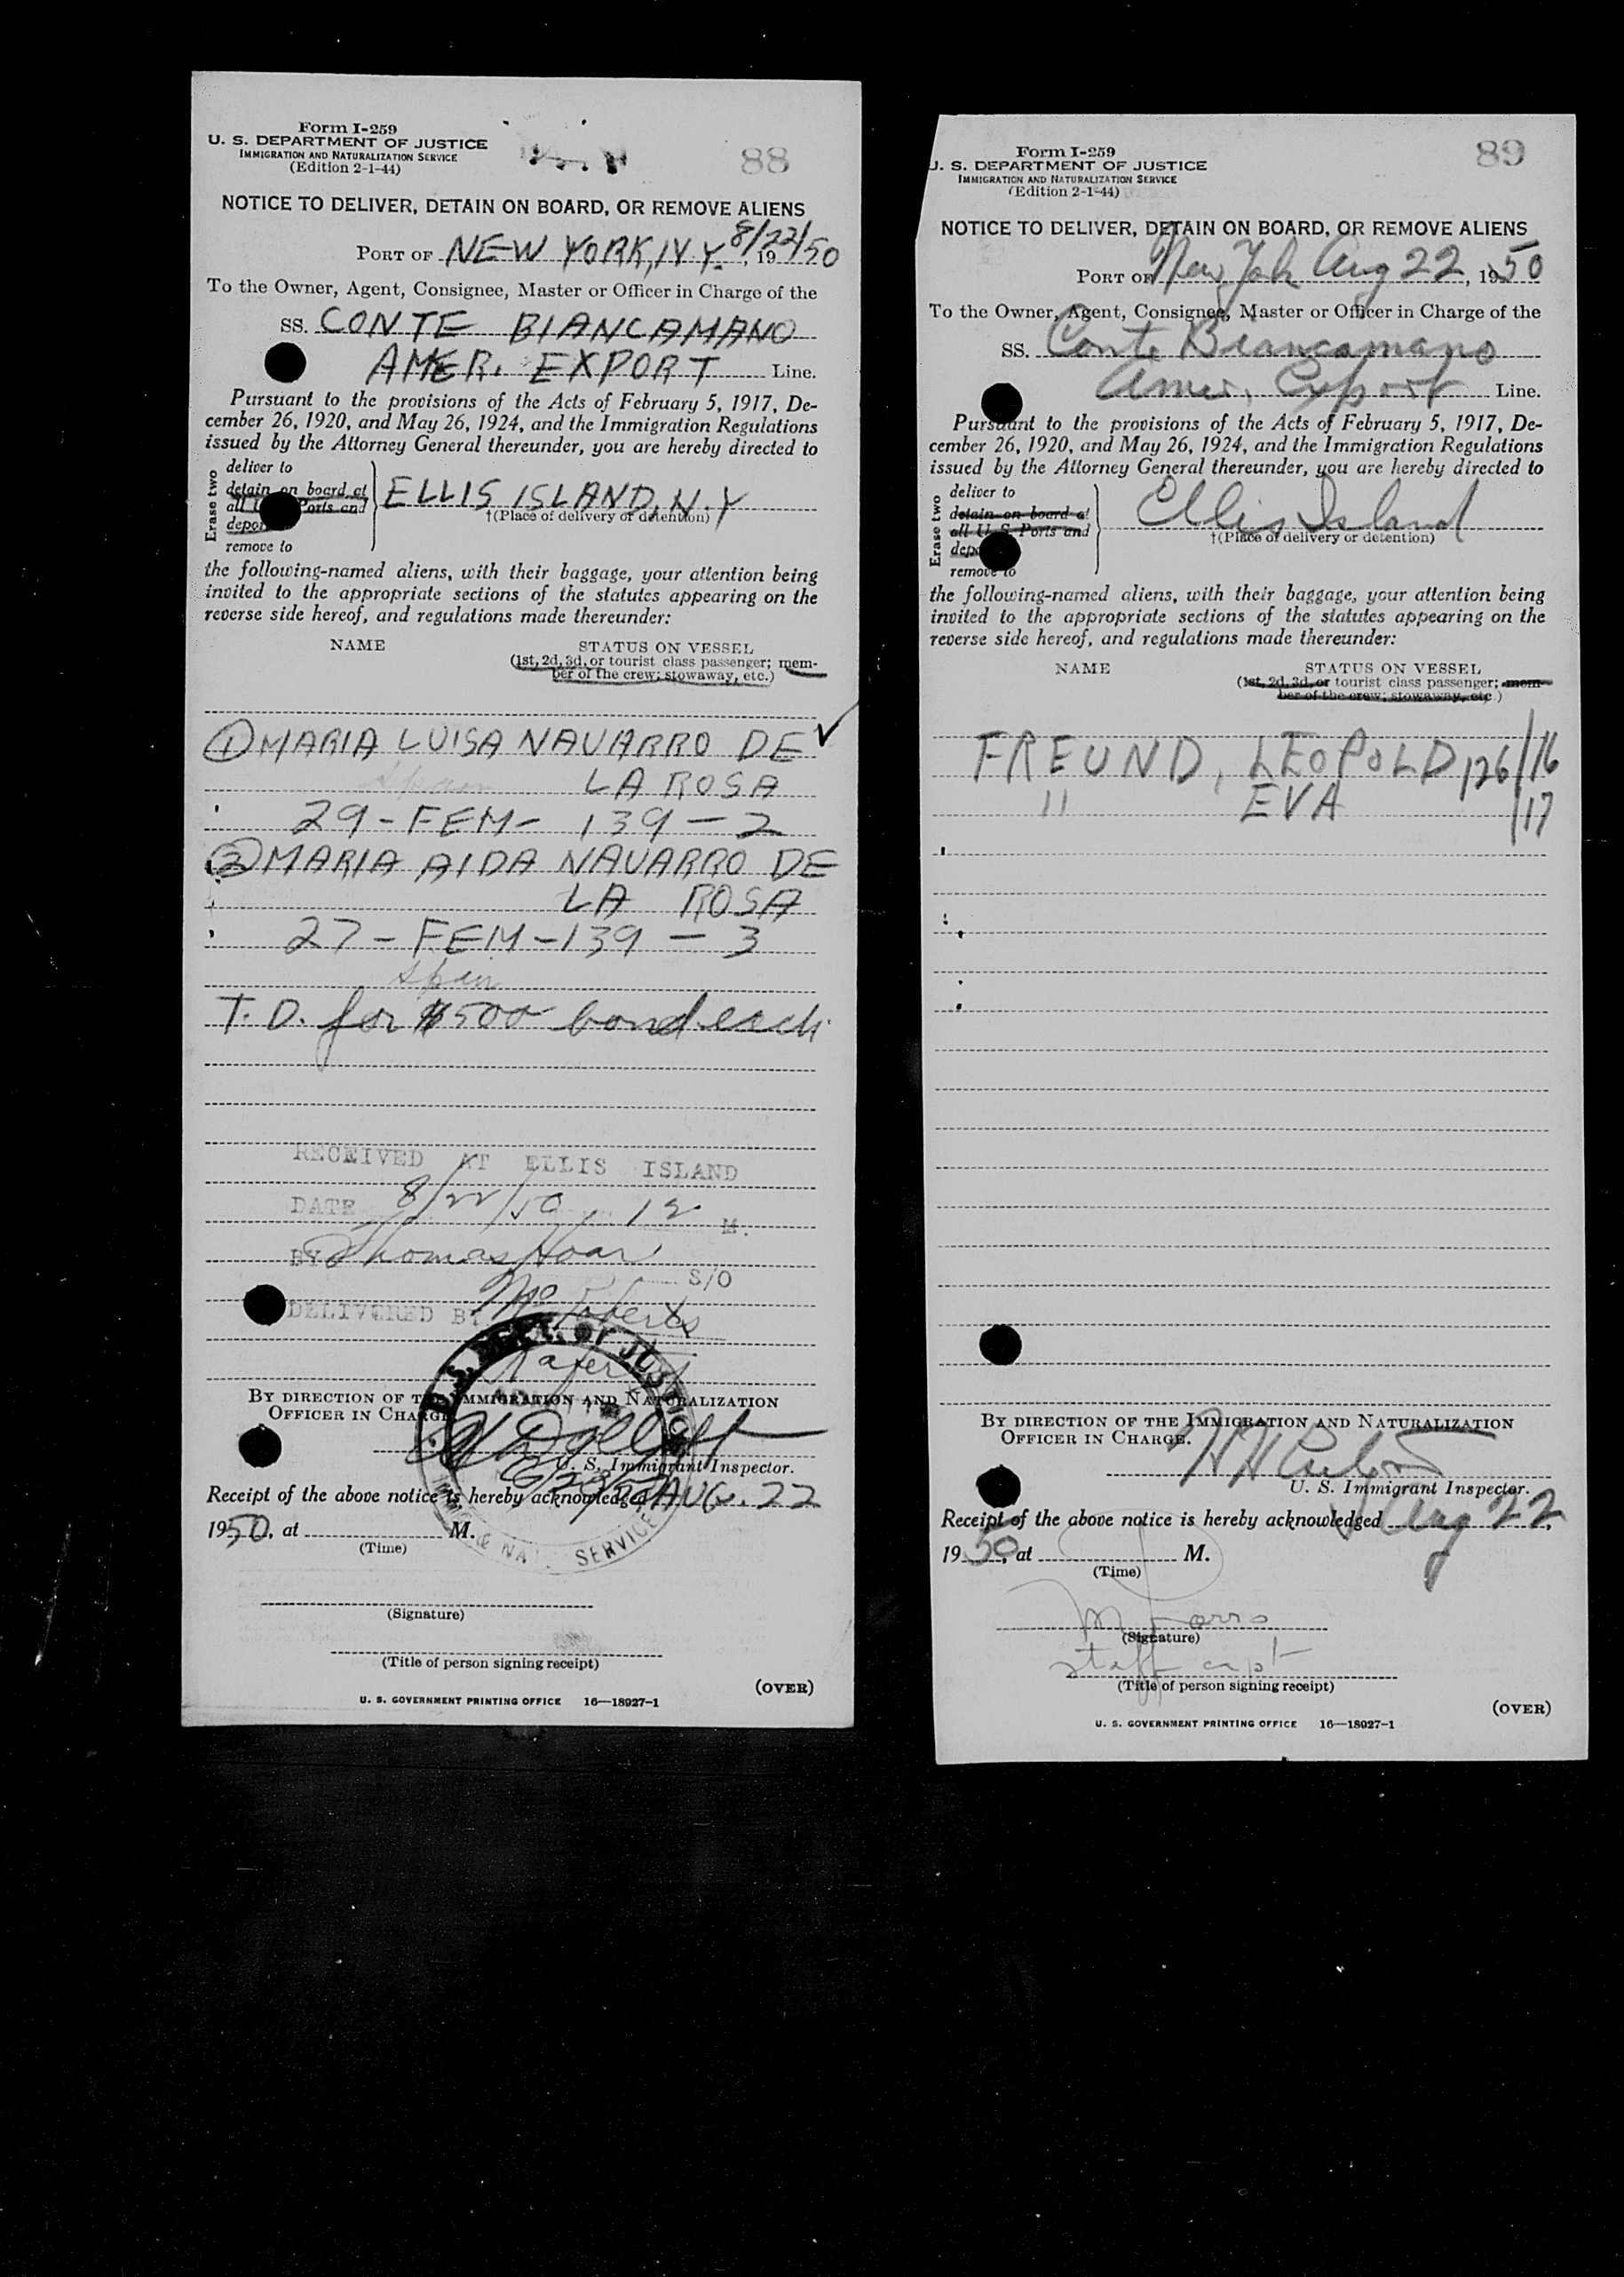 Form I-259
U. S. DEPARTMENT OF JUSTICE
IMMIGRATION AND NATURALIZATION SERVICE
(Edition 2-1-44)
88
NOTICE TO DELIVER, DETAIN ON BOARD, OR REMOVE ALIENS
PORT OF NEW YORK, N.Y. 8/22/50, 19
To the Owner, Agent, Consignee, Master or Officer in Charge of the
SS. CONTE BIANCAMANO
AMER. EXPORT Line.
Pursuant to the provisions of the Acts of February 5, 1917, De-
cember 26, 1920, and May 26, 1924, and the Immigration Regulations
issued by the Attorney General thereunder, you are hereby directed to
Erase two
deliver to
detain on board at
all Ports and
remove to
ELLIS ISLAND, N.Y
†(Place of delivery or detention)
the following-named aliens, with their baggage, your attention being
invited to the appropriate sections of the statutes appearing on the
reverse side hereof, and regulations made thereunder:
NAME STATUS ON VESSEL
(1st, 2d, 3d, or tourist class passenger; mem-
ber of the crew; stowaway, etc.)
① MARIA LUISA NAVARRO DE ✓
LA ROSA
Spain
29 - FEM - 139 - 2
② MARIA AIDA NAVARRO DE
LA ROSA
27 - FEM - 139 - 3
Spain
T. D. for $500 bond each
RECEIVED AT ELLIS ISLAND
DATE 8/22/50 12 M.
BY Thomas Hoar
S/O
DELIVERED BY
U. S. DEPT. OF JUSTICE
BY DIRECTION OF THE IMMIGRATION AND NATURALIZATION
OFFICER IN CHARGE.
U. S. Immigrant Inspector.
Receipt of the above notice is hereby acknowledged AUG. 22
1950, at M.
(Time)
IMM. & NAT. SERVICE
(Signature)
(Title of person signing receipt)
(OVER)
U. S. GOVERNMENT PRINTING OFFICE 16—18927-1
Form I-259
U. S. DEPARTMENT OF JUSTICE
IMMIGRATION AND NATURALIZATION SERVICE
(Edition 2-1-44)
89
NOTICE TO DELIVER, DETAIN ON BOARD, OR REMOVE ALIENS
PORT OF New York Aug 22, 1950
To the Owner, Agent, Consignee, Master or Officer in Charge of the
SS. Conte Biancamano
Amer. Export Line.
Pursuant to the provisions of the Acts of February 5, 1917, De-
cember 26, 1920, and May 26, 1924, and the Immigration Regulations
issued by the Attorney General thereunder, you are hereby directed to
Erase two
deliver to
detain on board at
all U. S. Ports and
remove to
Ellis Island
†(Place of delivery or detention)
the following-named aliens, with their baggage, your attention being
invited to the appropriate sections of the statutes appearing on the
reverse side hereof, and regulations made thereunder:
NAME STATUS ON VESSEL
(1st, 2d, 3d, or tourist class passenger; mem-
ber of the crew; stowaway, etc.)
FREUND, LEOPOLD 126/16
" EVA /17
BY DIRECTION OF THE IMMIGRATION AND NATURALIZATION
OFFICER IN CHARGE.
U. S. Immigrant Inspector.
Receipt of the above notice is hereby acknowledged Aug 22,
1950, at M.
(Time)
(Signature)
staff capt
(Title of person signing receipt)
(OVER)
U. S. GOVERNMENT PRINTING OFFICE 16—18927-1